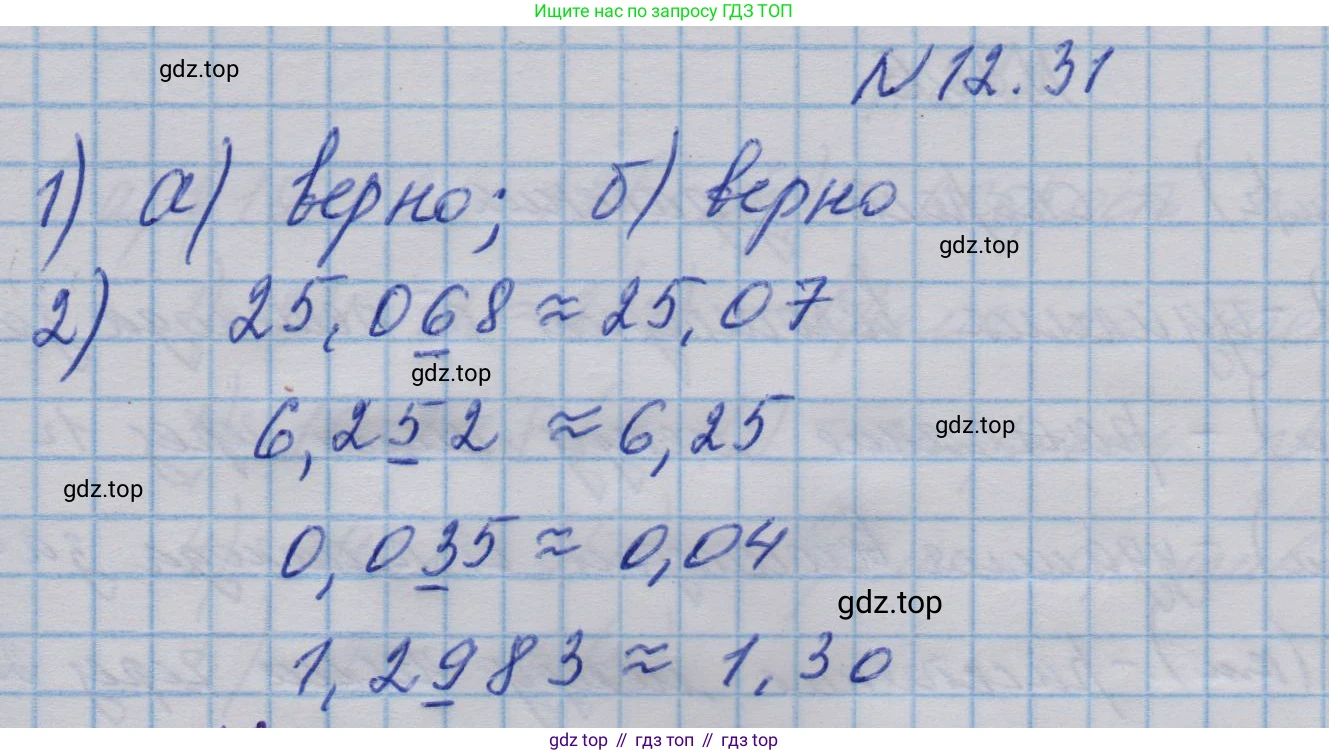 Ищите нас по запросу ГДЗ ТОП
gdz.top
№ 12.31
1) а) верно; б) верно
gdz.top
2) 25,068 ≈ 25,07
gdz.top
6,252 ≈ 6,25
gdz.top
gdz.top
0,035 ≈ 0,04
gdz.top
1,2983 ≈ 1,30
gdz top // гдз топ // gdz top